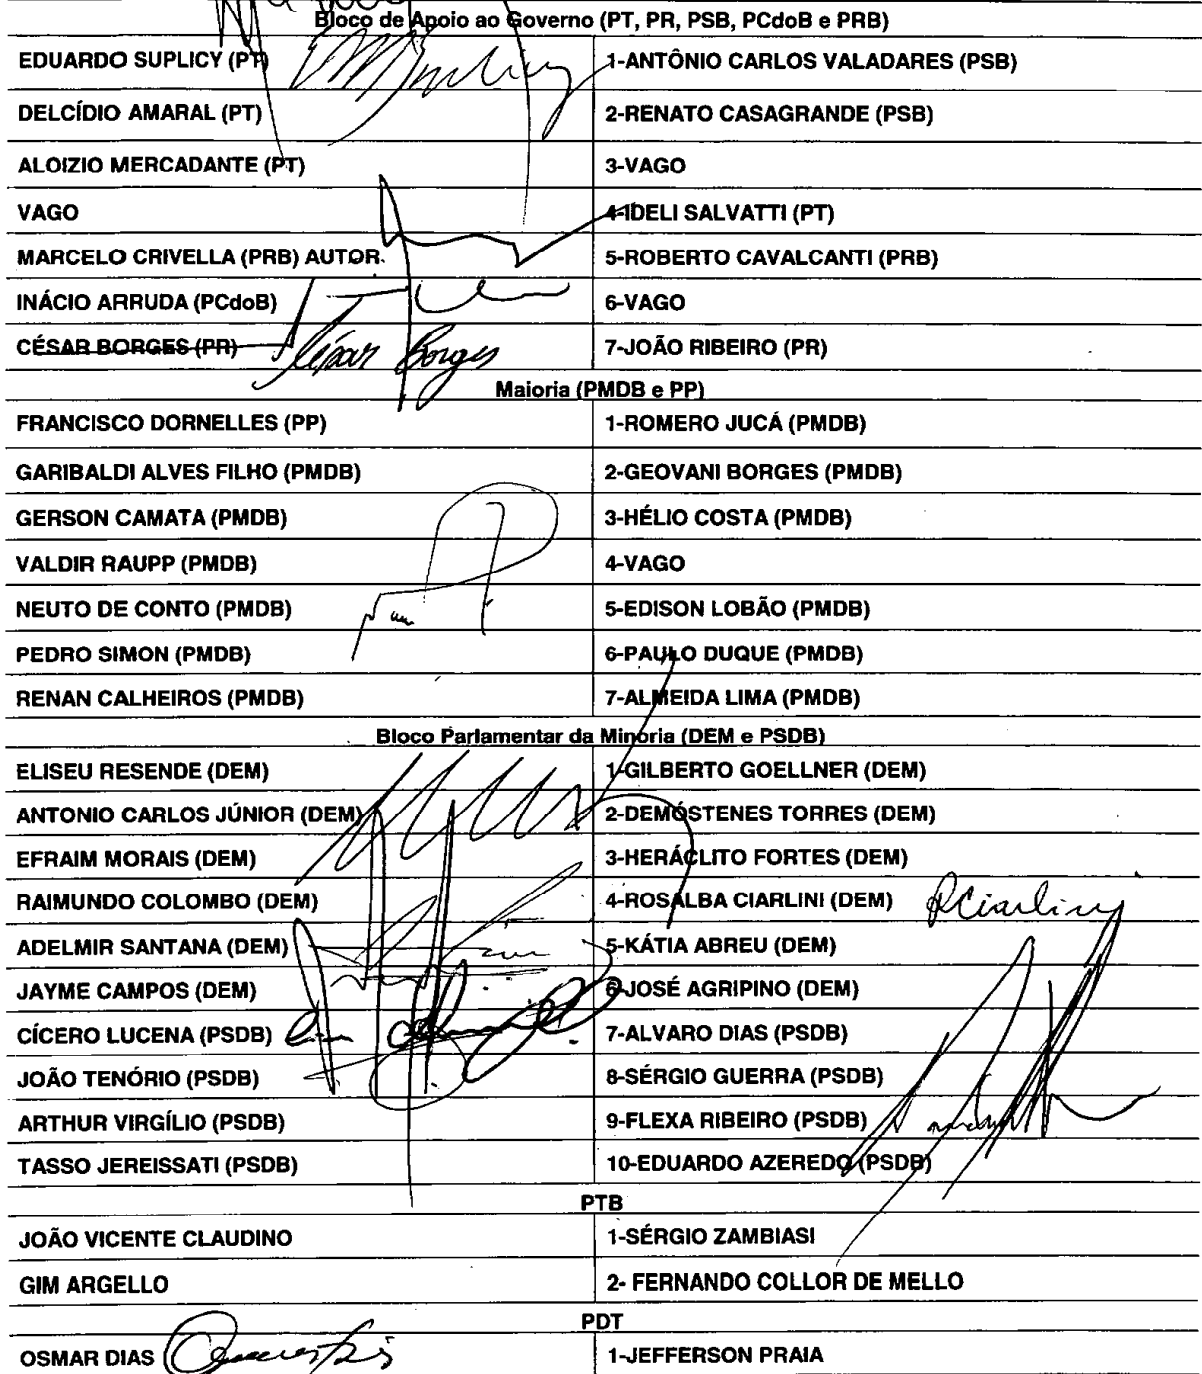 Bloco de Apoio ao Governo (PT, PR, PSB, PCdoB e PRB)
EDUARDO SUPLICY (PT) 1-ANTÔNIO CARLOS VALADARES (PSB)
DELCÍDIO AMARAL (PT) 2-RENATO CASAGRANDE (PSB)
ALOIZIO MERCADANTE (PT) 3-VAGO
VAGO 4-IDELI SALVATTI (PT)
MARCELO CRIVELLA (PRB) AUTOR. 5-ROBERTO CAVALCANTI (PRB)
INÁCIO ARRUDA (PCdoB) 6-VAGO
CÉSAR BORGES (PR) César Borges 7-JOÃO RIBEIRO (PR)
Maioria (PMDB e PP)
FRANCISCO DORNELLES (PP) 1-ROMERO JUCÁ (PMDB)
GARIBALDI ALVES FILHO (PMDB) 2-GEOVANI BORGES (PMDB)
GERSON CAMATA (PMDB) 3-HÉLIO COSTA (PMDB)
VALDIR RAUPP (PMDB) 4-VAGO
NEUTO DE CONTO (PMDB) 5-EDISON LOBÃO (PMDB)
PEDRO SIMON (PMDB) 6-PAULO DUQUE (PMDB)
RENAN CALHEIROS (PMDB) 7-ALMEIDA LIMA (PMDB)
Bloco Parlamentar da Minoria (DEM e PSDB)
ELISEU RESENDE (DEM) 1-GILBERTO GOELLNER (DEM)
ANTONIO CARLOS JÚNIOR (DEM) 2-DEMÓSTENES TORRES (DEM)
EFRAIM MORAIS (DEM) 3-HERÁCLITO FORTES (DEM)
RAIMUNDO COLOMBO (DEM) 4-ROSALBA CIARLINI (DEM) RCiarlini
ADELMIR SANTANA (DEM) 5-KÁTIA ABREU (DEM)
JAYME CAMPOS (DEM) 6-JOSÉ AGRIPINO (DEM)
CÍCERO LUCENA (PSDB) 7-ALVARO DIAS (PSDB)
JOÃO TENÓRIO (PSDB) 8-SÉRGIO GUERRA (PSDB)
ARTHUR VIRGÍLIO (PSDB) 9-FLEXA RIBEIRO (PSDB)
TASSO JEREISSATI (PSDB) 10-EDUARDO AZEREDO (PSDB)
PTB
JOÃO VICENTE CLAUDINO 1-SÉRGIO ZAMBIASI
GIM ARGELLO 2- FERNANDO COLLOR DE MELLO
PDT
OSMAR DIAS 1-JEFFERSON PRAIA